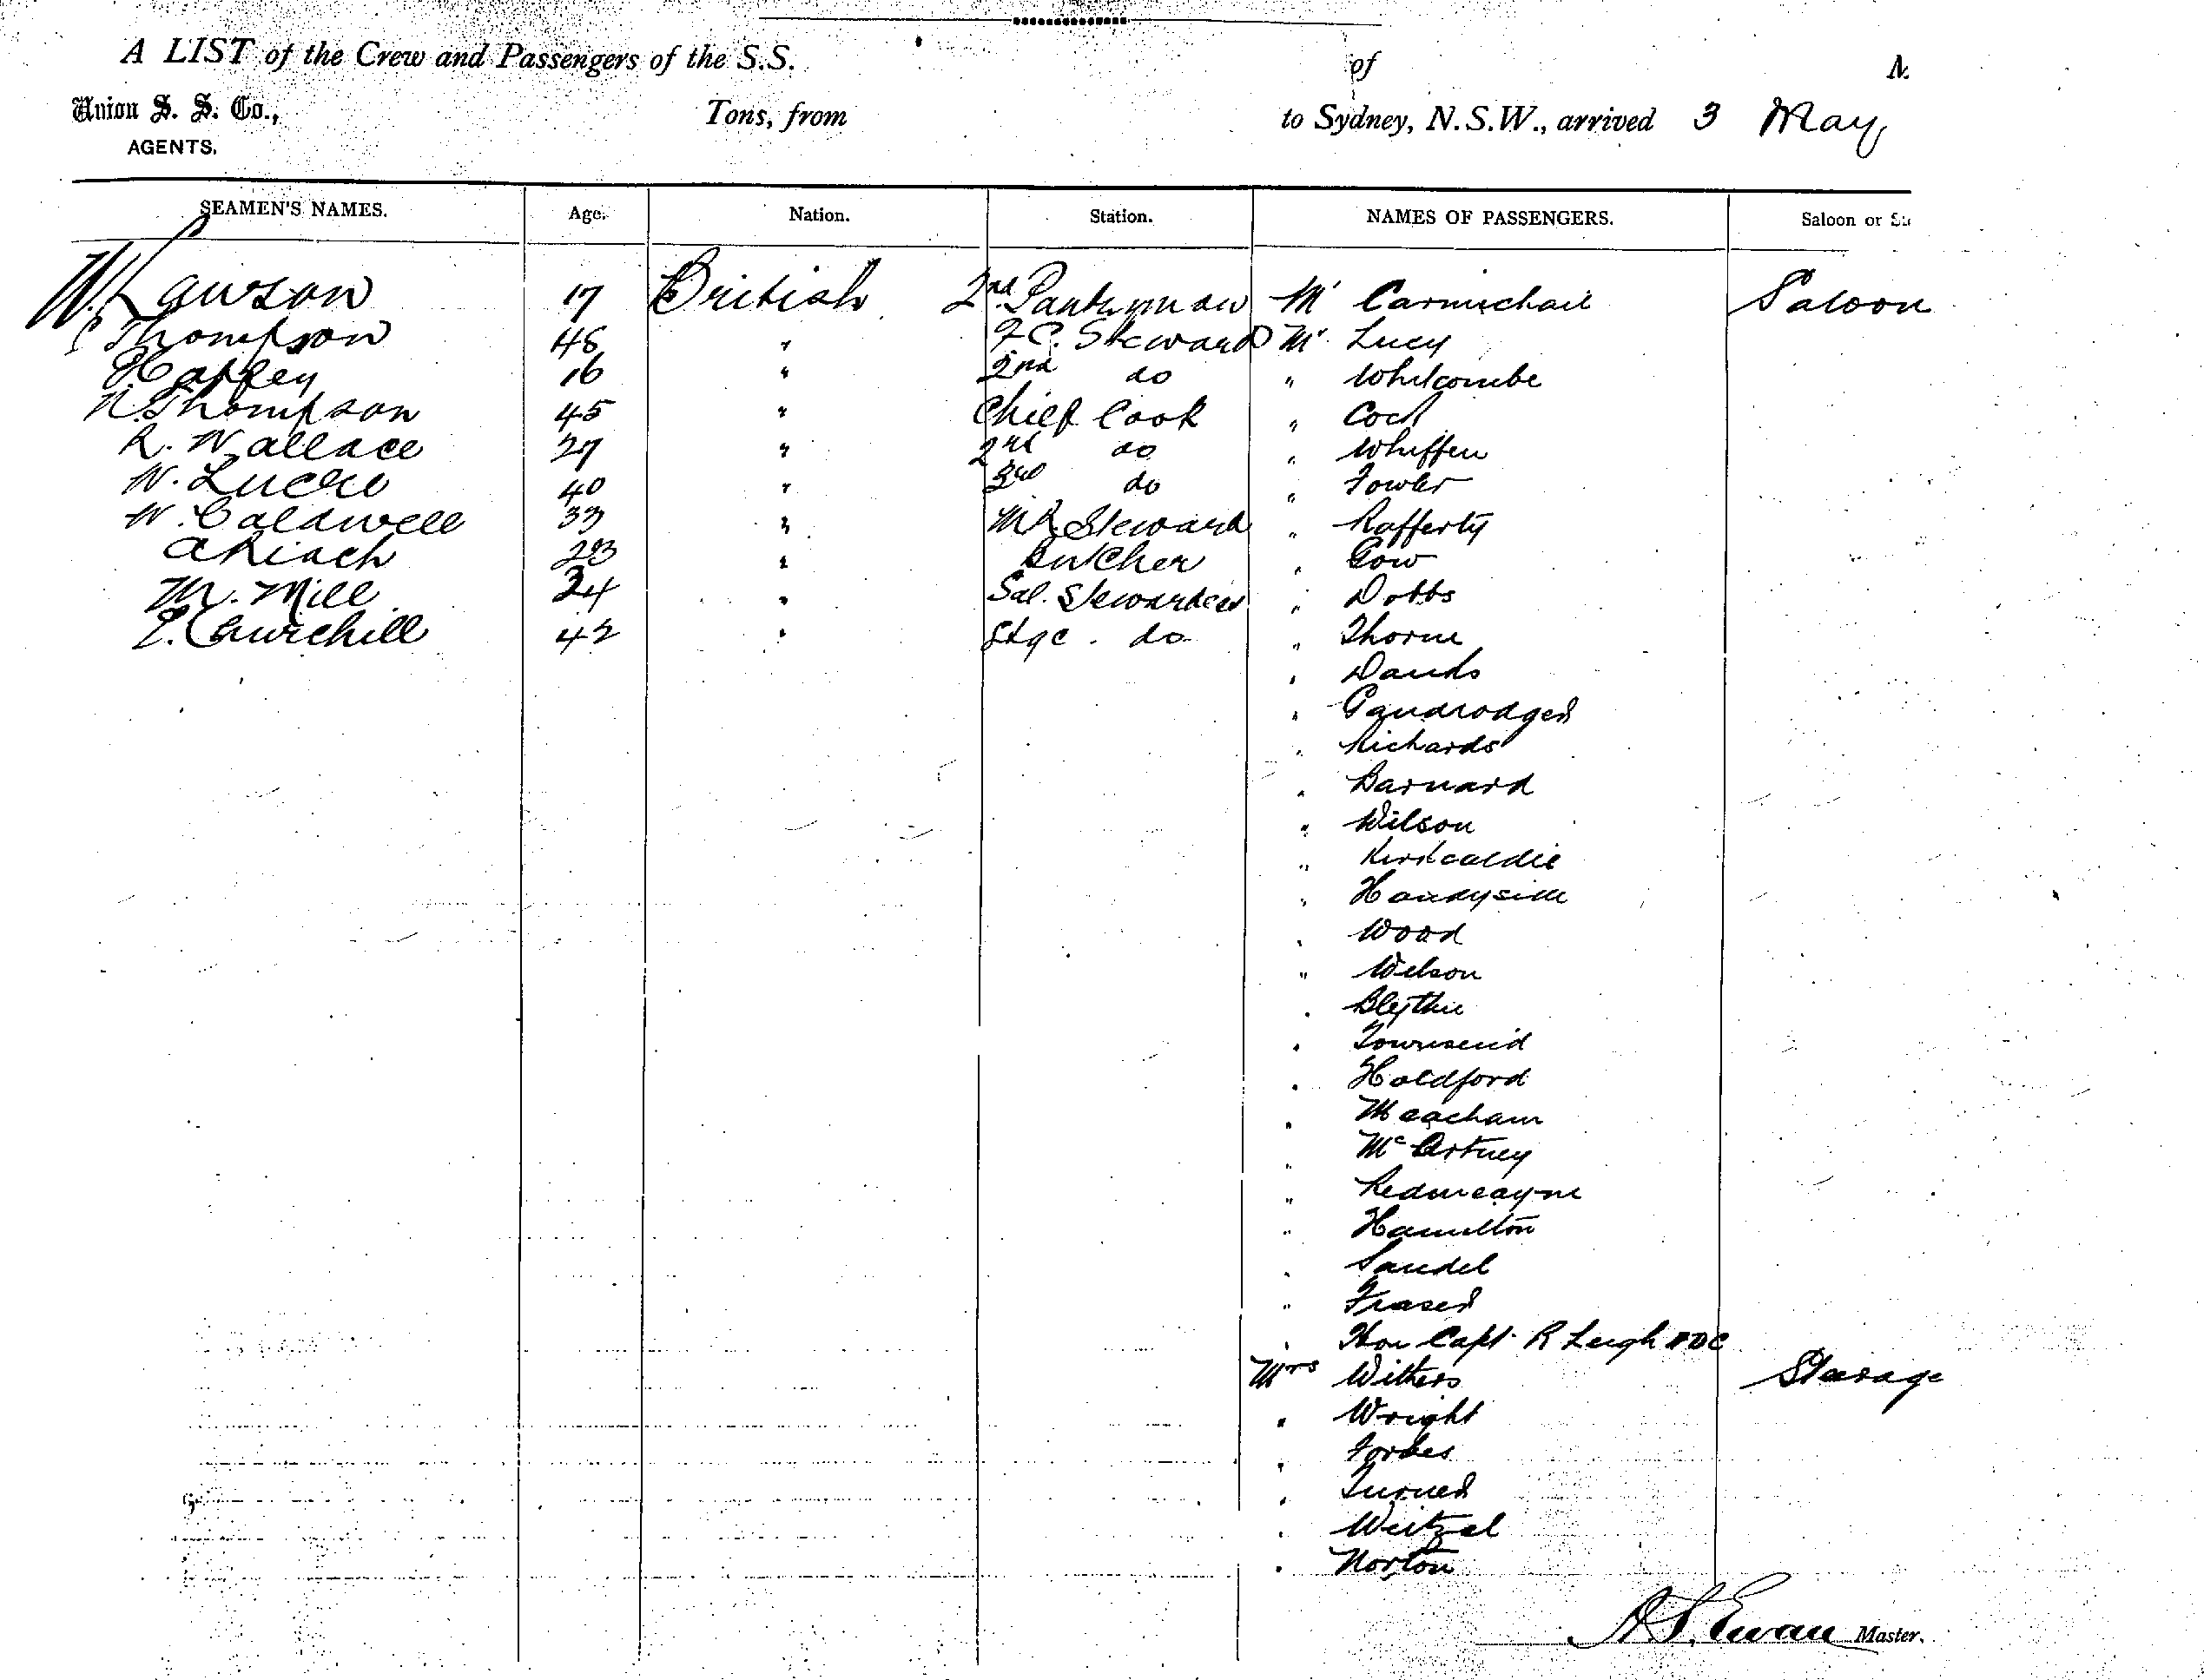 A LIST of the Crew and Passengers of the S.S. of
Union S. S. Co., Tons, from to Sydney, N.S.W., arrived 3 May
AGENTS,
SEAMEN'S NAMES. Age. Nation. Station. NAMES OF PASSENGERS. Saloon or
W. Lawson 17 British 2nd Pantryman Mr Carmichael Saloon
Thompson 48 " F.C. Steward Mr Lucy
16 " 2nd do " Whitcombe
N. Thompson 45 " Chief Cook " Cock
R. Wallace 27 " 2nd do " Whiffen
W. 40 " 3rd do " Fowler
W. Caldwell 33 " Steward " Rafferty
A Riach 23 " Butcher " Gow
M. Mill 34 " Sal. Stewardess " Dobbs
E. Churchill 42 " Stge. do " Thorne
"
"
" Richards
" Barnard
" Wilson
" Kirkcaldie
" Handyside
" Wood
" Wilson
" Blythe
" Townsend
" Holdford
" Meacham
" McArtney
" Redmayne
" Hamilton
" Sandel
" Fraser
" Hon Capt. R Leigh ADC
Mrs Withers Steerage
" Wright
" Forbes
" Turner
" Weitzel
" Norton
A. S. Ewan Master.